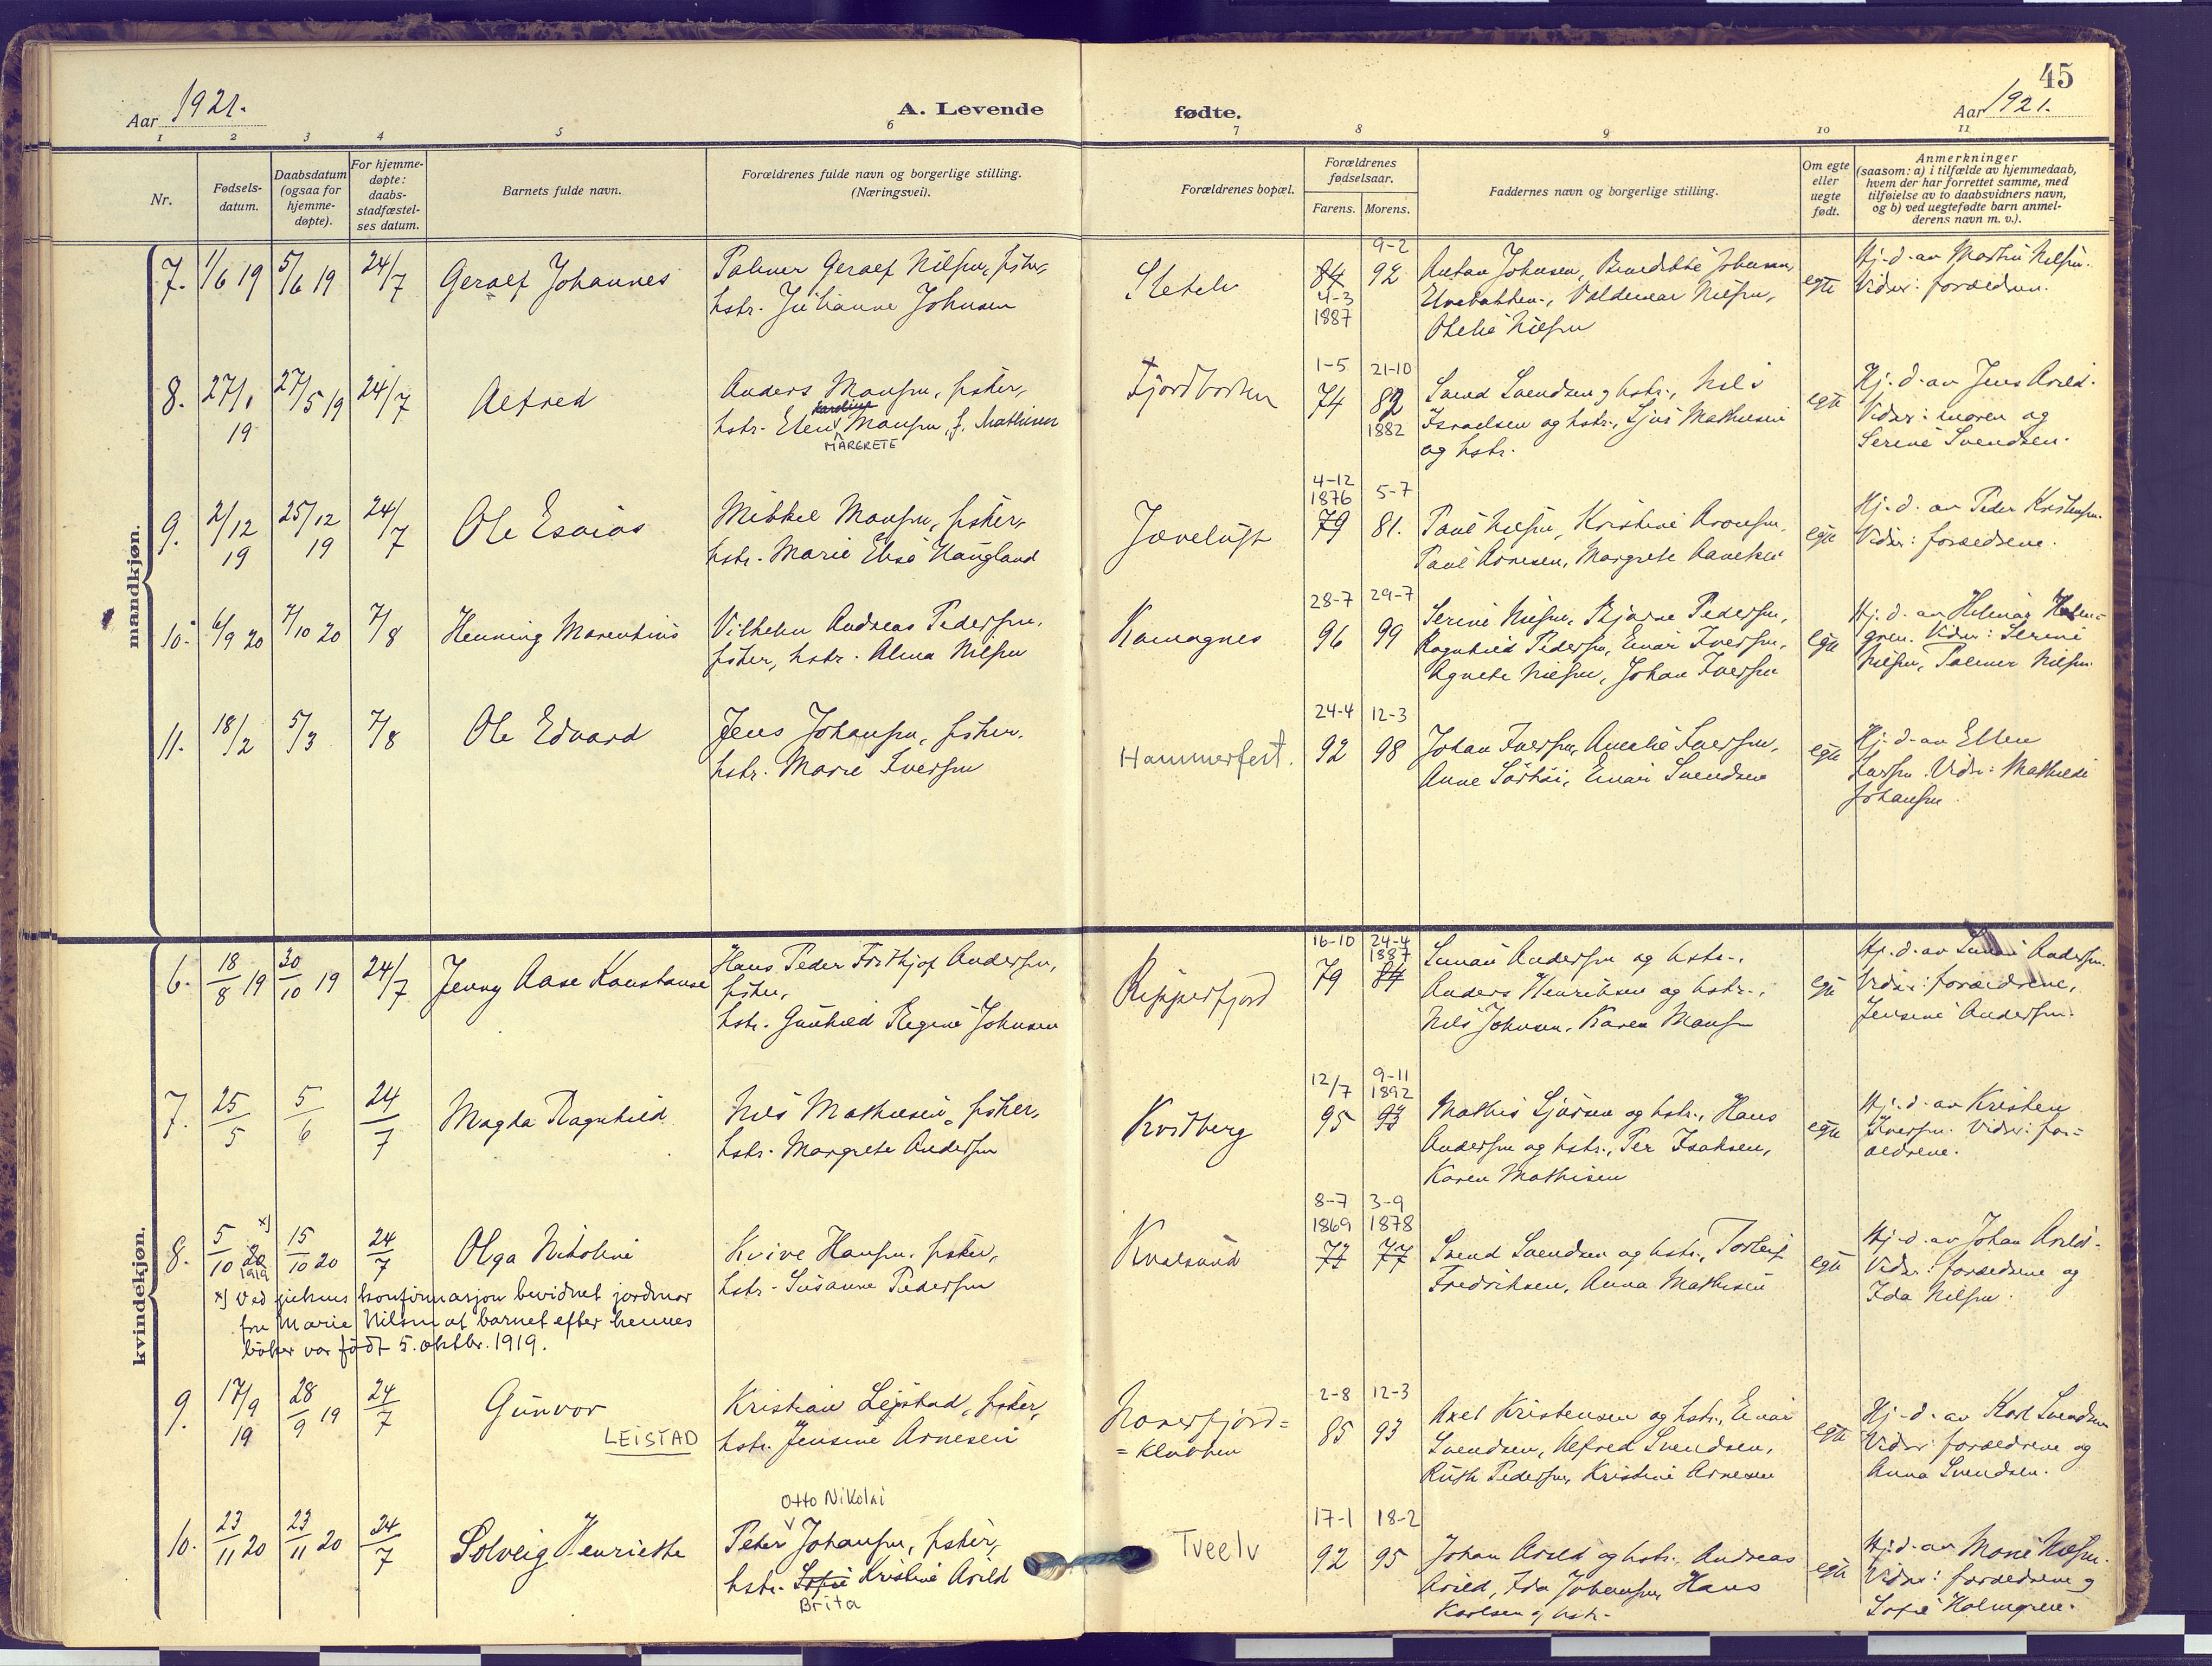 45
Aar 1921.
A. Levende
fødte.
Aar 1921.
1 2 3 4 5 6 7 8 9 10 11
Nr.
Fødsels-
datum.
Daabsdatum
(ogsaa for
hjemme-
døpte).
For hjemme-
døpte:
daabs-
stadfæstel-
ses datum.
Barnets fulde navn.
Forældrenes fulde navn og borgerlige stilling.
(Næringsvei).
Forældrenes bopæl.
Forældrenes
fødselsaar.
Farens. Morens.
Faddernes navn og borgerlige stilling.
Om egte
eller
uegte
født.
Anmerkninger
(saasom: a) i tilfælde av hjemmedaab,
hvem der har forrettet samme, med
tilføielse av to daabsvidners navn,
og b) ved uegtefødte barn anmel-
derens navn m. v.).
mandkjøn.
7. 1/6 19 5/6 19 24/7 Geralf Johannes
Palmer Geralf Nilsen, fisker,
hstr. Julianne Johnsen
84
4-3
1887
9-2
92
Anton Johnsen, Benedikte Johnsen,
Elvebakken, Valdemar Nilsen,
Otelie Nilsen
egte
Hj. d. av Martin Nilsen.
Vidner: forældrene.
8. 27/1 19 27/5 19 24/7 Alfred
Anders Monsen, fisker,
hstr. Elen Karoline Monsen, f. Mathisen
MARGRETE
Fjordbotten
1-5
74
21-10
82
1882
Svend Svendsen og hstr., Nils
Israelsen og hstr., Mathisen
og hstr.
egte
Hj. d. av Jens Arild.
Vidner: moren og
Serine Svendsen.
9. 2/12 19 25/12 19 24/7 Ole Esaias
Mikkel Monsen, fisker,
hstr. Marie Elise Haugland
4-12
1876
79
5-7
81.
Paul Nilsen, Kristine Aronsen,
Paul Arnesen, Margrete
egte
Hj. d. av Peder Kristensen.
Vidner: forældrene.
10. 6/9 20 7/10 20 7/8 Henning Marentius
Vilhelm Andreas Pedersen,
fisker, hstr. Alma Nilsen
Komagnes
28-7
96
29-7
99
Serine Nilsen, Bjarne Pedersen,
Ragnhild Pedersen, Einar Iversen,
Agnete Nilsen, Johan Iversen
egte
Hj. d. av Hilmar Holm-
gren. Vidner: Serine
Nilsen, Palmer Nilsen.
11. 18/2 5/3 7/8 Ole Edvard
Jens Johansen, fisker,
hstr. Marie Iversen
Hammerfest.
24-4
92
12-3
98
Johan Iversen, Amalie Iversen,
Anne, Einar Svendsen
egte
Hj. d. av Ellen
Larsen. Vidn: Mathilde
Johansen.
kvindekjøn.
6. 18/8 19 30/10 19 24/7 Jenny Aase Konstanse
Hans Peder Fridtjof Andersen,
fisker,
hstr. Gunhild Regine Johnsen
Ripperfjord
16-10
79
24-4
1887
84
Andersen og hstr.,
Anders Henriksen og hstr.,
Nils Johnsen, Karen Monsen
egte
Hj. d. av Andersen.
Vidner: forældrene,
Jensine Andersen.
7. 25/5 5/6 24/7 Magda Ragnhild
Nils Mathisen, fisker,
hstr. Margrete Andersen
Kvitberg
12/7
95
9-11
1892
93
Mathis og hstr., Hans
Andersen og hstr., Per Isaksen,
Karen Mathisen
egte
Hj. d. av Kristen
Iversen. Vidner: for-
ældrene.
8. 5/10 20 x) 1919 15/10 20 24/7 Olga Nikoline
Kvive Hansen, fisker,
hstr. Susanne Pedersen
Kvalsund
8-7
1869
71
3-9
1878
77
Svend Svendsen og hstr., Torleif
Fredriksen, Anna Mathisen
egte
Hj. d. av Johan Arild.
Vidn: forældrene og
Ida Nilsen.
x) Ved pikens konfirmasjon bevidnet jordmor
fru Marie Nilsen at barnet efter hennes
bøker var født 5. oktbr. 1919.
9. 17/9 19 28/9 19 24/7 Gunvor
LEISTAD
Kristian Leistad, fisker,
hstr. Jensine Arnesen
=klubben
2-8
85
12-3
93
Axel Kristensen og hstr., Einar
Svendsen, Alfred Svendsen,
Ruth Pedersen, Kristine Arnesen
egte
Hj. d. av Karl Svendsen
Vidner: forældrene og
Anna Svendsen.
10. 23/11 20 23/11 20 24/7 Solveig Henriette
Otto Nikolai
Peter Johansen, fisker,
hstr. Sofie Kristine Arild
Brita
Tveelv
17-1
92
18-2
95
Johan Arild og hstr., Andreas
Arild, Ida Johansen, Hans
Karlsen og hstr.
egte
Hj. d. av Marie Nilsen.
Vidner: forældrene og
Sofie Holmgren.